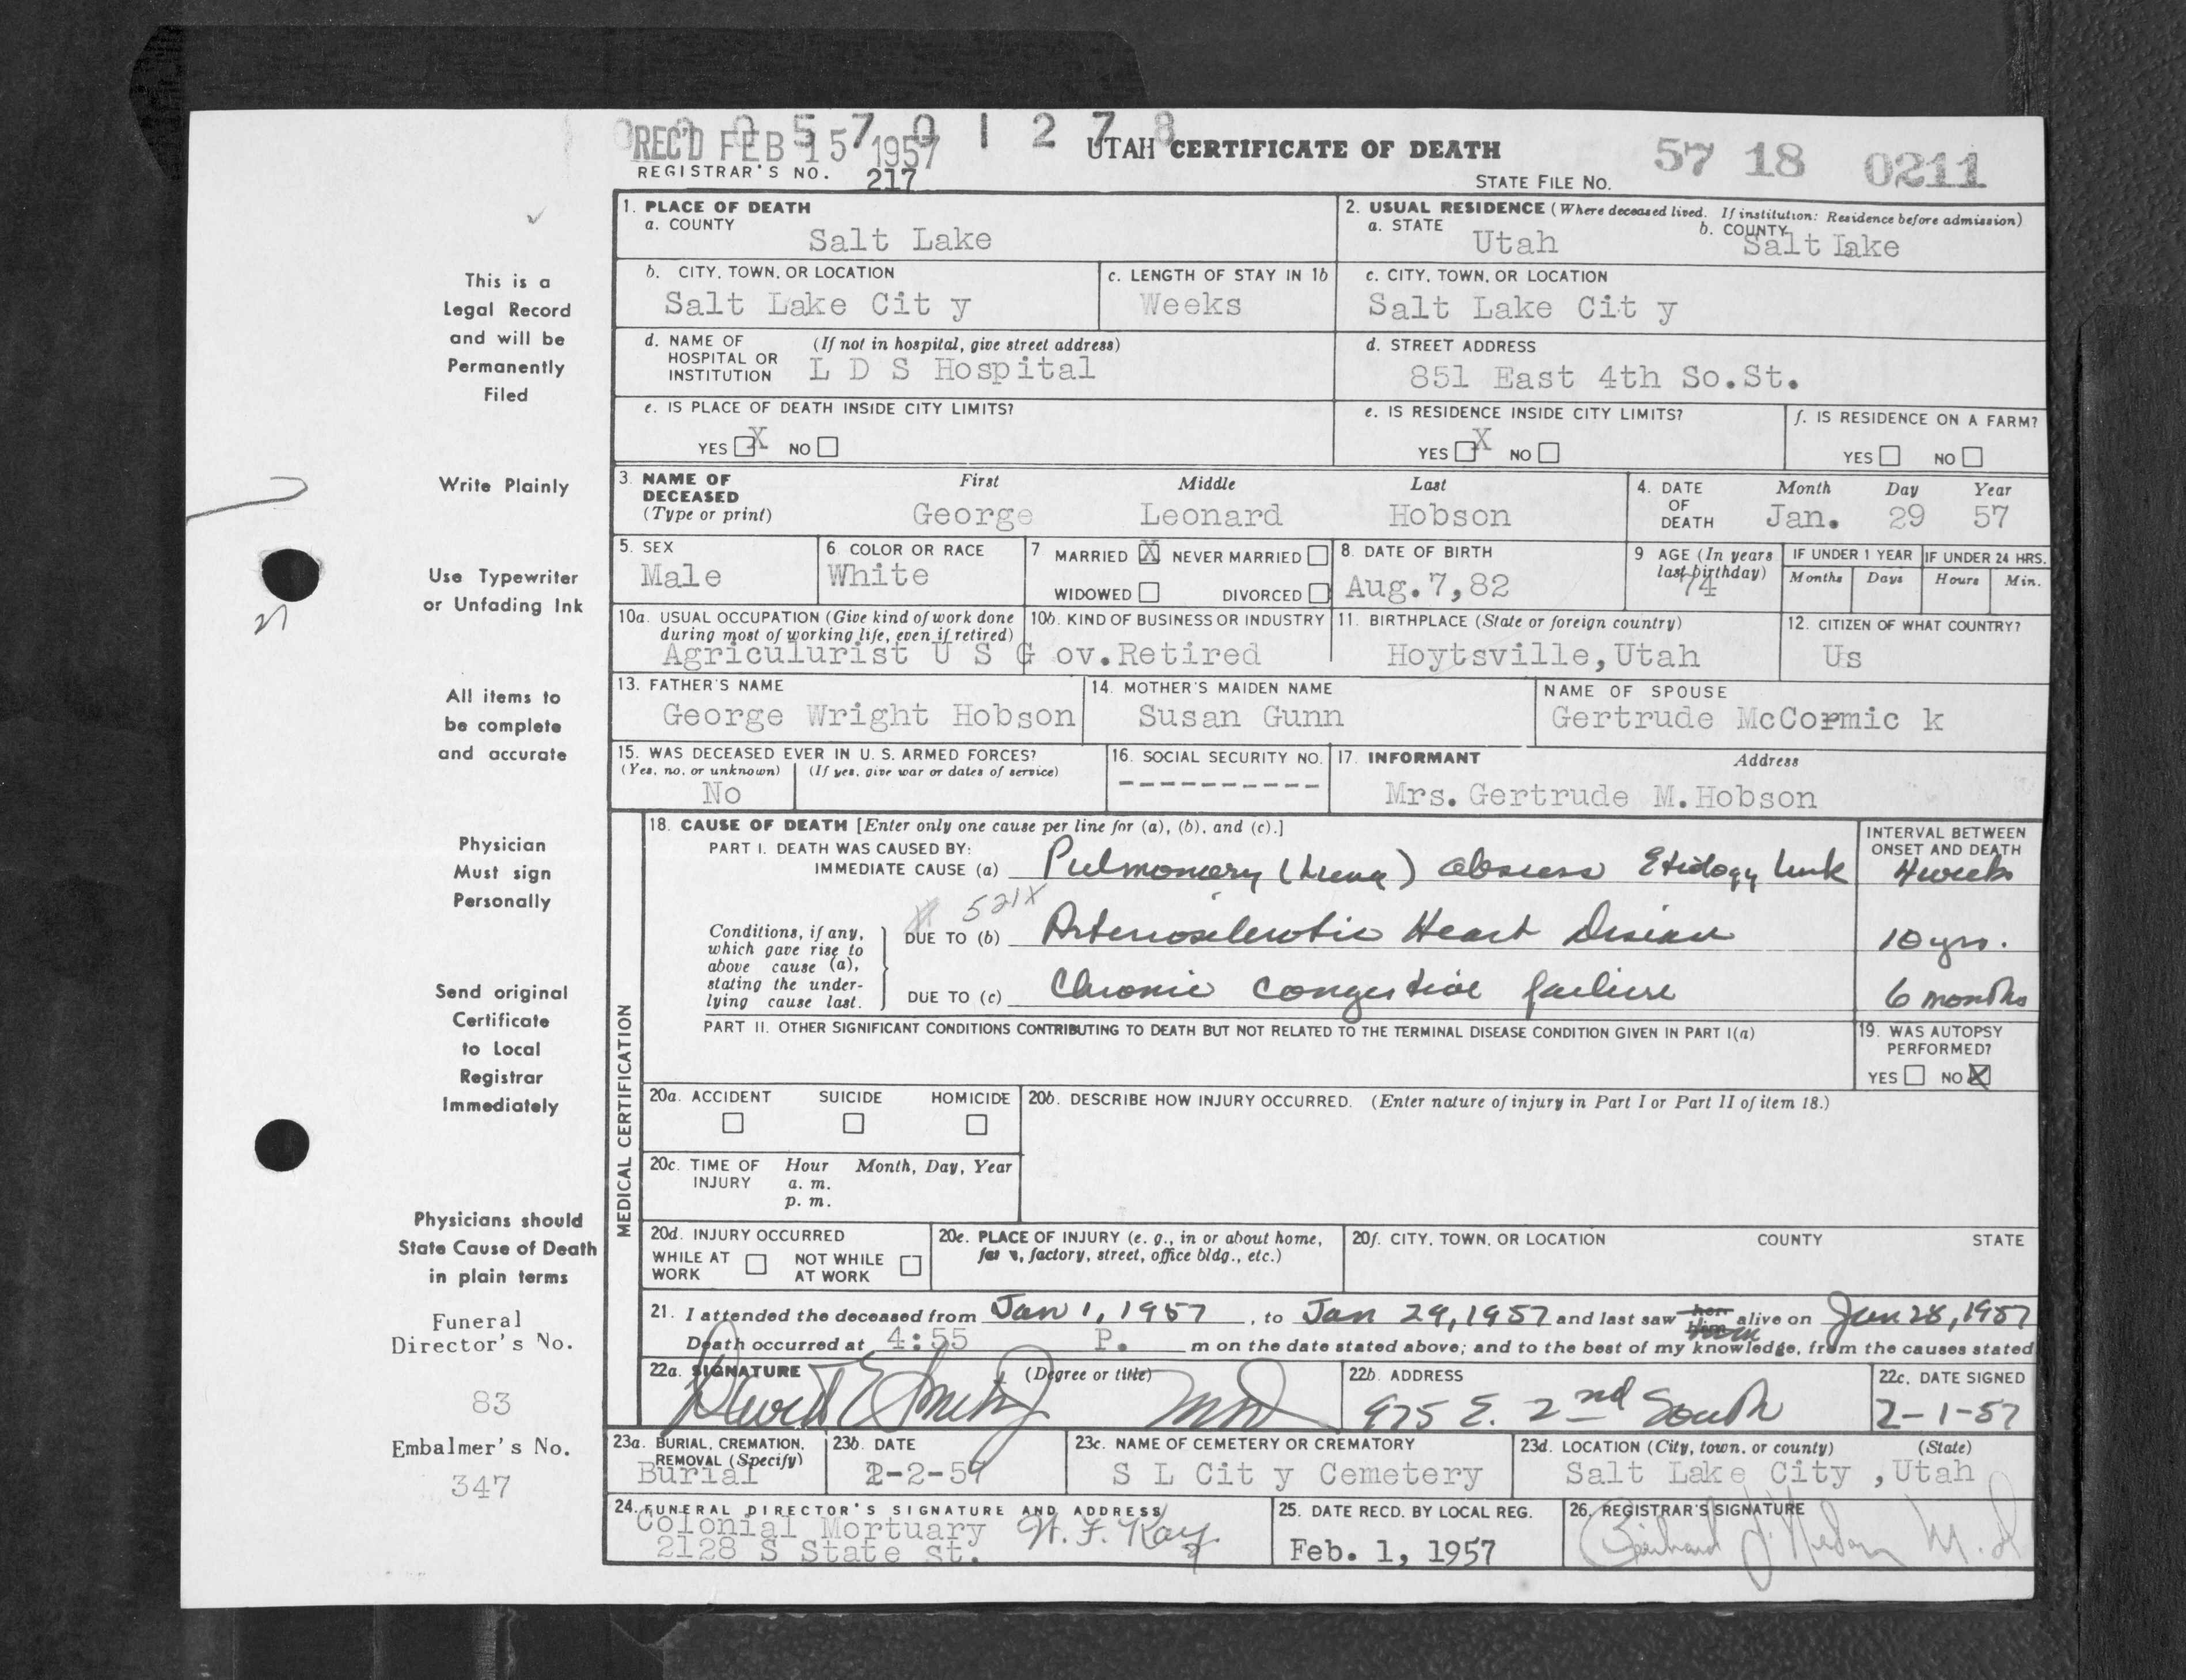 REC'D FEB 15 1957
0 0 5 7 0 1 2 7 8
UTAH CERTIFICATE OF DEATH
57 18 0211
REGISTRAR'S NO. 217
STATE FILE NO.
This is a
Legal Record
and will be
Permanently
Filed
Write Plainly
Use Typewriter
or Unfading Ink
All items to
be complete
and accurate
Physician
Must sign
Personally
Send original
Certificate
to Local
Registrar
Immediately
Physicians should
State Cause of Death
in plain terms
Funeral
Director's No.
83
Embalmer's No.
347
1. PLACE OF DEATH
a. COUNTY
Salt Lake
2. USUAL RESIDENCE (Where deceased lived. If institution: Residence before admission)
a. STATE Utah
b. COUNTY Salt Lake
b. CITY, TOWN, OR LOCATION
Salt Lake Cit y
c. LENGTH OF STAY IN 1b
Weeks
c. CITY, TOWN, OR LOCATION
Salt Lake Cit y
d. NAME OF HOSPITAL OR INSTITUTION (If not in hospital, give street address)
L D S Hospital
d. STREET ADDRESS
851 East 4th So.St.
e. IS PLACE OF DEATH INSIDE CITY LIMITS?
YES X NO
e. IS RESIDENCE INSIDE CITY LIMITS?
YES X NO
f. IS RESIDENCE ON A FARM?
YES NO
3. NAME OF DECEASED (Type or print)
First Middle Last
George Leonard Hobson
4. DATE OF DEATH
Month Day Year
Jan. 29 57
5. SEX
Male
6. COLOR OR RACE
White
7 MARRIED X NEVER MARRIED
WIDOWED DIVORCED
8. DATE OF BIRTH
Aug.7,82
9 AGE (In years last birthday)
74
IF UNDER 1 YEAR
Months Days
IF UNDER 24 HRS.
Hours Min.
10a. USUAL OCCUPATION (Give kind of work done during most of working life, even if retired)
10b. KIND OF BUSINESS OR INDUSTRY
Agriculurist U S G ov.Retired
11. BIRTHPLACE (State or foreign country)
Hoytsville,Utah
12. CITIZEN OF WHAT COUNTRY?
Us
13. FATHER'S NAME
George Wright Hobson
14. MOTHER'S MAIDEN NAME
Susan Gunn
NAME OF SPOUSE
Gertrude McCormic k
15. WAS DECEASED EVER IN U. S. ARMED FORCES?
(Yes, no, or unknown) (If yes, give war or dates of service)
No
16. SOCIAL SECURITY NO.
----------
17. INFORMANT Address
Mrs.Gertrude M.Hobson
MEDICAL CERTIFICATION
18. CAUSE OF DEATH [Enter only one cause per line for (a), (b), and (c).]
INTERVAL BETWEEN ONSET AND DEATH
PART I. DEATH WAS CAUSED BY:
IMMEDIATE CAUSE (a) Pulmonary (Lung) abscess Etiology Unk 4 weeks
521X
Conditions, if any, which gave rise to above cause (a), stating the underlying cause last.
DUE TO (b) Arteriosclerotic Heart Disease 10 yrs.
DUE TO (c) Chronic congestive failure 6 months
PART II. OTHER SIGNIFICANT CONDITIONS CONTRIBUTING TO DEATH BUT NOT RELATED TO THE TERMINAL DISEASE CONDITION GIVEN IN PART I(a)
19. WAS AUTOPSY PERFORMED?
YES NO X
20a. ACCIDENT SUICIDE HOMICIDE
20b. DESCRIBE HOW INJURY OCCURRED. (Enter nature of injury in Part I or Part II of item 18.)
20c. TIME OF INJURY Hour Month, Day, Year
a. m.
p. m.
20d. INJURY OCCURRED
WHILE AT WORK NOT WHILE AT WORK
20e. PLACE OF INJURY (e. g., in or about home, factory, street, office bldg., etc.)
20f. CITY, TOWN, OR LOCATION COUNTY STATE
21. I attended the deceased from Jan 1, 1957, to Jan 29, 1957 and last saw her him alive on Jan 28, 1957
Death occurred at 4:55 P. m on the date stated above; and to the best of my knowledge, from the causes stated
22a. SIGNATURE (Degree or title)
MD
22b. ADDRESS
975 E. 2nd South
22c. DATE SIGNED
2-1-57
23a. BURIAL, CREMATION, REMOVAL (Specify)
Burial
23b. DATE
2-2-57
23c. NAME OF CEMETERY OR CREMATORY
S L Cit y Cemetery
23d. LOCATION (City, town, or county) (State)
Salt Lake City ,Utah
24. FUNERAL DIRECTOR'S SIGNATURE AND ADDRESS
Colonial Mortuary
2128 S State st.
W. F. Kay
25. DATE RECD. BY LOCAL REG.
Feb. 1, 1957
26. REGISTRAR'S SIGNATURE
M.D